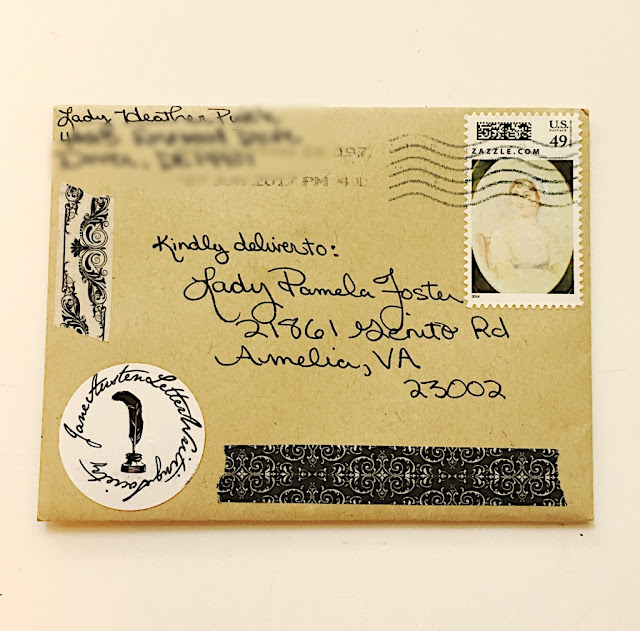 Lady Heather
197
JUN 2017 PM 4 L
U.S.
POSTAGE
49
ZAZZLE.COM
2014
Kindly deliver to:
Lady Pamela Foster
21861 Genito Rd
Amelia, VA
23002
Jane Austen Letter Writing Society